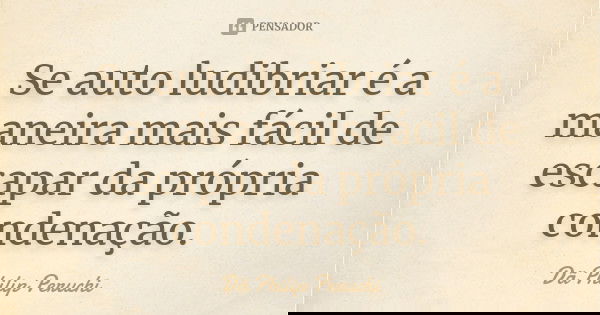 PENSADOR
Se auto ludibriar é a
maneira mais fácil de
escapar da própria
condenação.
Da Philip Peruchi